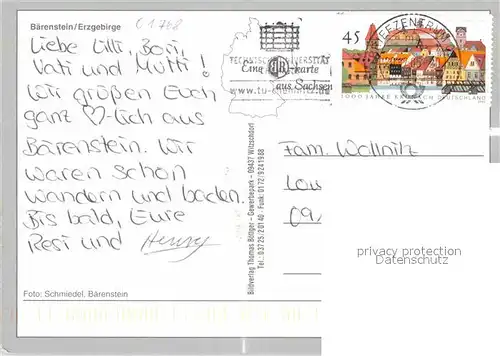 Bärenstein/Erzgebirge
01768
Liebe Lilli, Bori,
Vati und Mutti!
Wir grüßen Euch
ganz ♡-lich aus
Bärenstein. Wir
waren schon
wandern und baden.
Bis bald, Eure
Resi und Henry
Foto: Schmiedel, Bärenstein
Bildverlag Thomas Böttger - Gewerbepark - 09437 Witzschdorf
Tel.: 03725/20140 · Funk: 0172/9241988
TECHNISCHE UNIVERSITÄT
Eine karte
aus Sachsen
www.tu-chemnitz.de
BRIEFZENTRUM
45
1000 JAHRE DEUTSCHLAND
Fam. Wollnitz
09
privacy protection
Datenschutz